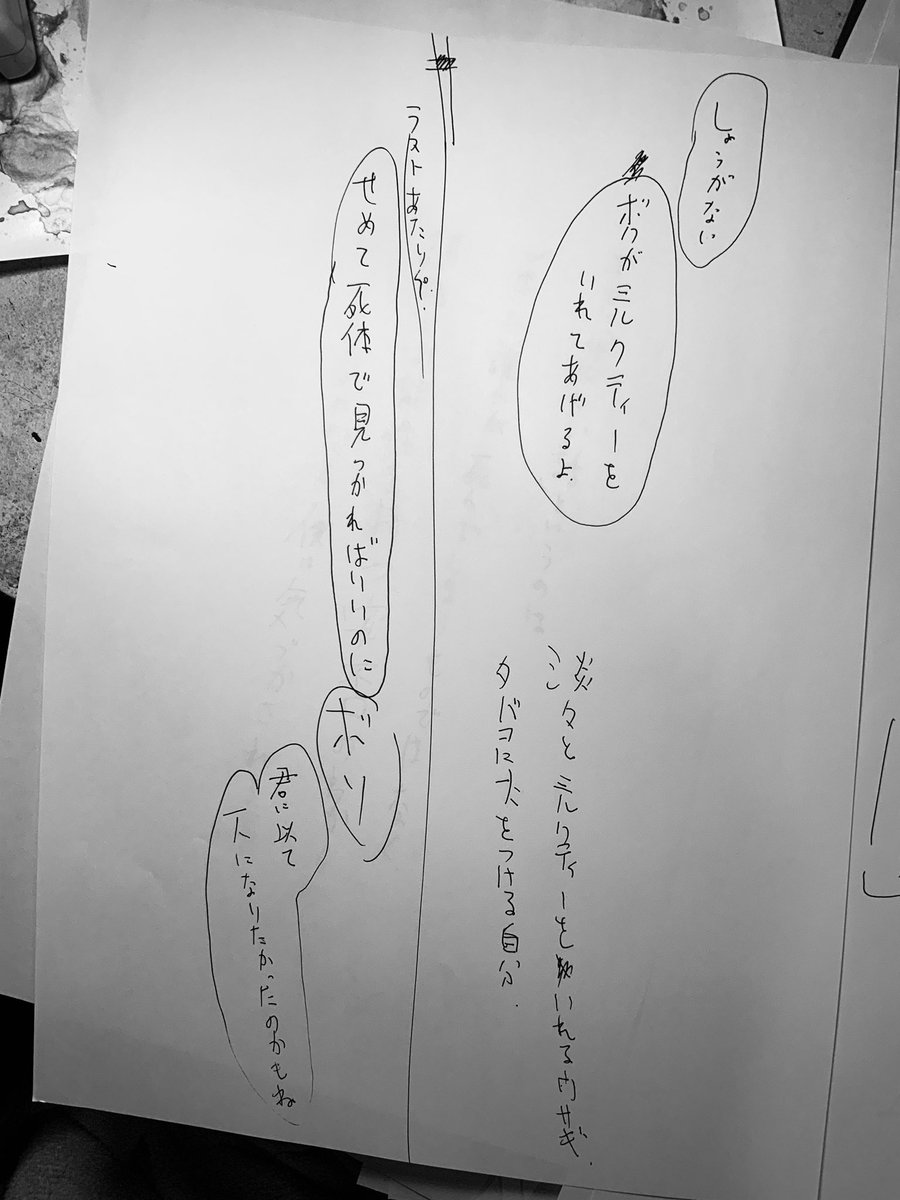 しょうがない
ボクがミルクティーを
いれてあげるよ.
淡々とミルクティーをいれるウサギ.
タバコに火をつける自分.
ラストあたりで.
せめて死体で見つかればいいのに
ボソ
君に以て
一人になりたかったのかもね